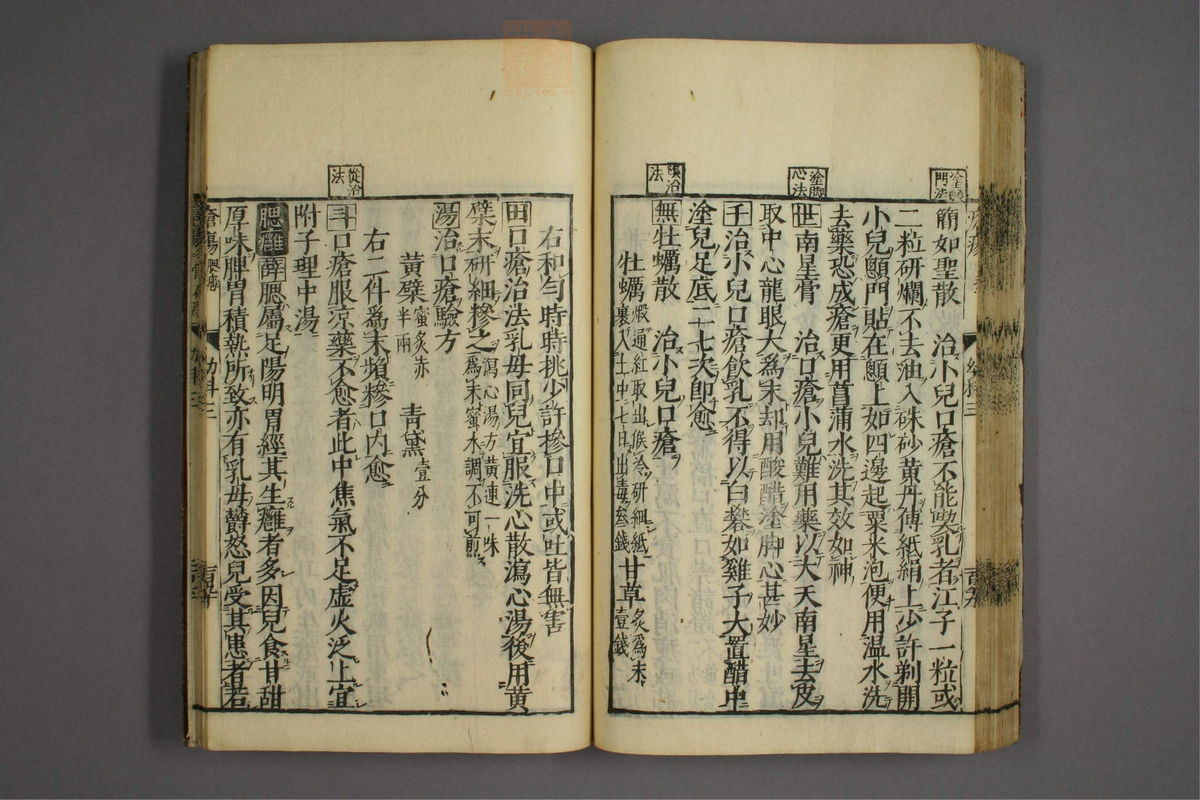 塗顖門法
簡如聖散　治小兒口瘡不能喫乳者江子一粒或
二粒研爛不去油入硃砂黄丹傅紙絹上少許剃開
小兒顖門貼在顖上如四邊起粟米泡便用溫水洗
去藥恐成瘡更用菖蒲水洗其效如神
塗脚心法
世南星膏　治口瘡小兒難用藥以大天南星去皮
取中心龍眼大爲末却用酸醋塗脚心甚妙
壬治小兒口瘡飲乳不得以白礬如雞子大置醋中
塗兒足底二七次即愈
治法
無牡蠣散　治小兒口瘡
牡蠣煅通紅取出候冷研細紙裹入土中七日出毒叁錢 甘草炙爲末壹錢
右和勻時時挑少許摻口中或吐皆無害
田口瘡治法乳母同兒宜服洗心散瀉心湯後用黄
檗末研細摻之瀉心湯方黄連一味爲末蜜水調不可煎
湯治口瘡驗方
黄檗蜜炙赤半兩　青黛壹分
右二件爲末頻摻口内愈
從治法
斗口瘡服凉藥不愈者此中焦氣不足虚火泛上宜
附子理中湯
腮癰 薛腮屬足陽明胃經其生癰者多因兒食甘甜
厚味脾胃積熱所致亦有乳母欝怒兒受其患者若
瘡瘍
幼科三